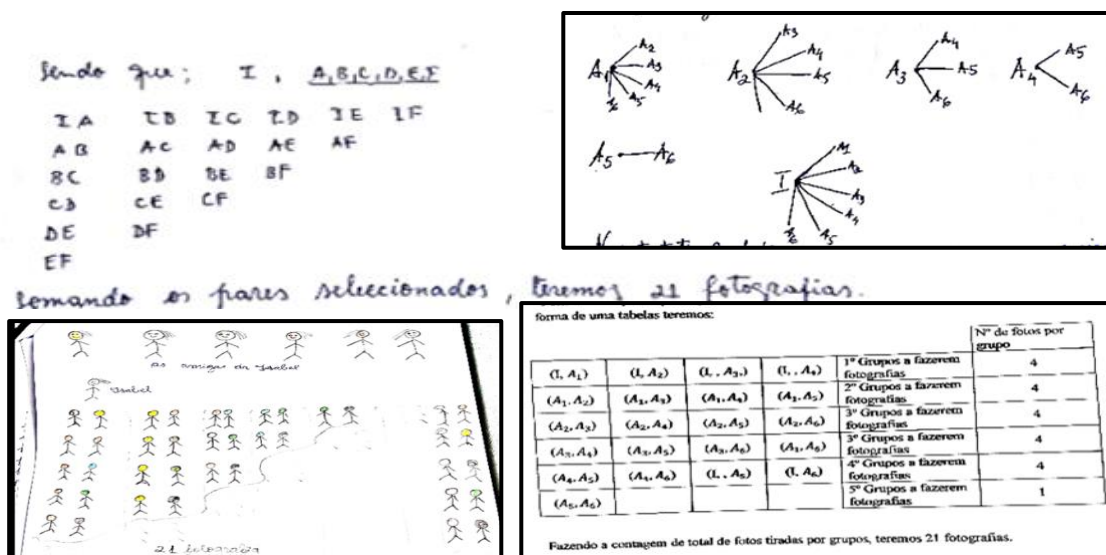 Sendo que; I, A,B,C,D,E,F
IA IB IC ID IE IF
AB AC AD AE AF
BC BD BE BF
CD CE CF
DE DF
EF
Somando os pares seleccionados, teremos 21 fotografias.
A1 A2 A3 A4 A5 A6
A2 A3 A4 A5 A6
A3 A4 A5 A6
A4 A5 A6
A5 A6
I A1 A2 A3 A4 A5 A6
As amigas da Isabel
Isabel
21 fotografia
forma de uma tabelas teremos:
Nº de fotos por grupo
(I, A₁) (I, A₂) (I, , A₃,) (I, , A₄) 1º Grupos a fazerem fotografias 4
(A₁, A₂) (A₁, A₃) (A₁, A₄) (A₁, A₅) 2º Grupos a fazerem fotografias 4
(A₂, A₃) (A₂, A₄) (A₂, A₅) (A₂, A₆) 3º Grupos a fazerem fotografias 4
(A₃, A₄) (A₃, A₅) (A₃, A₆) (A₁, A₆) 3º Grupos a fazerem fotografias 4
(A₄, A₅) (A₄, A₆) (I, , A₅) (I, A₆) 4º Grupos a fazerem fotografias 4
(A₅, A₆) 5º Grupos a fazerem fotografias 1
Fazendo a contagem de total de fotos tiradas por grupos, teremos 21 fotografias.